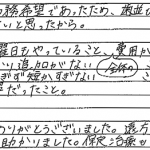 務希望であったため、歯並び
いと思ったから。
曜日もやっていること、費用が
り追加口がない 全体の
ぎず短かすぎない
だったこと。
りがとうございました。遠方
助かりました。保定治療が